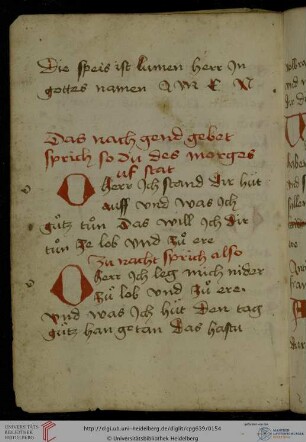 Die speis ist kumen herr In
gottes namen A M E N
Das nach gend gebet
sprich so du des morges
uf stat
O herr Ich stand dir hüt
auff und was Ich
gütz tůn Das will Ich dir
tůn ze lob und zů ere
zu nacht sprich also
O herr Ich leg mich nider
zů lob und zů ere.
und was Ich hüt den tag
gütz han getan das hastu
UNIVERSITÄTS-
BIBLIOTHEK
HEIDELBERG
http://digi.ub.uni-heidelberg.de/diglit/cpg639/0154
© Universitätsbibliothek Heidelberg